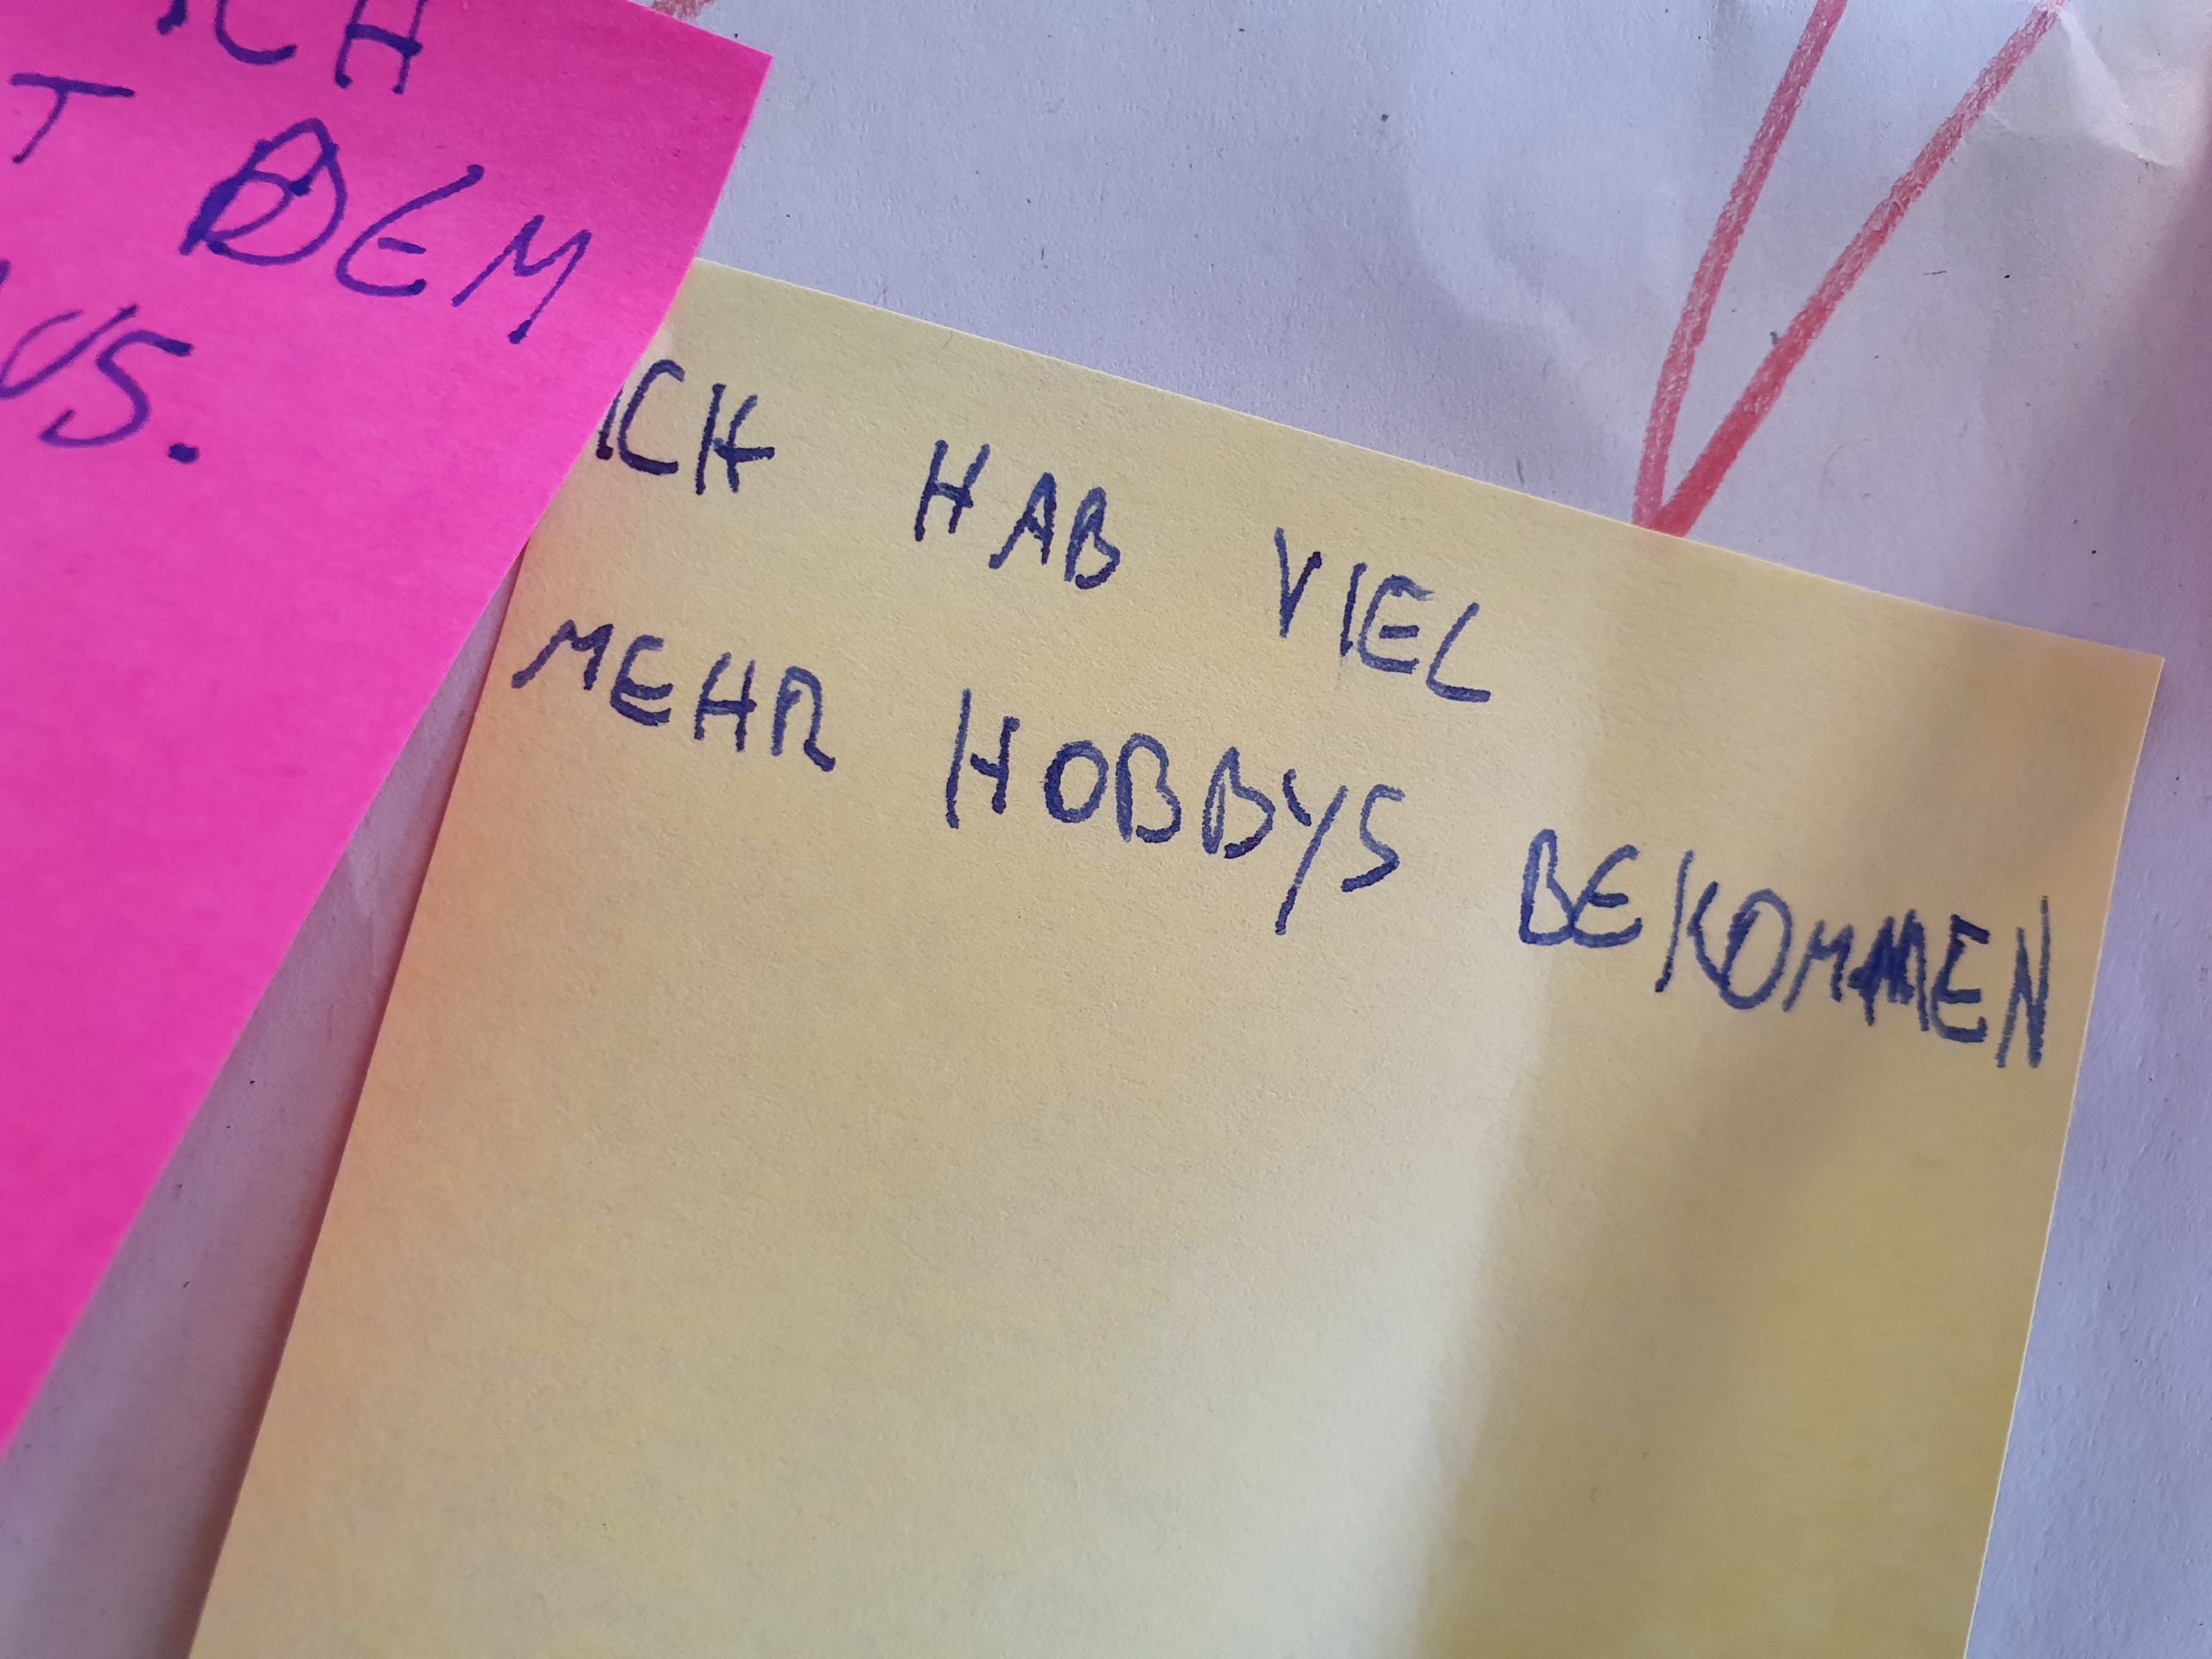 DEM
ICH HAB VIEL
MEHR HOBBYS BEKOMMEN